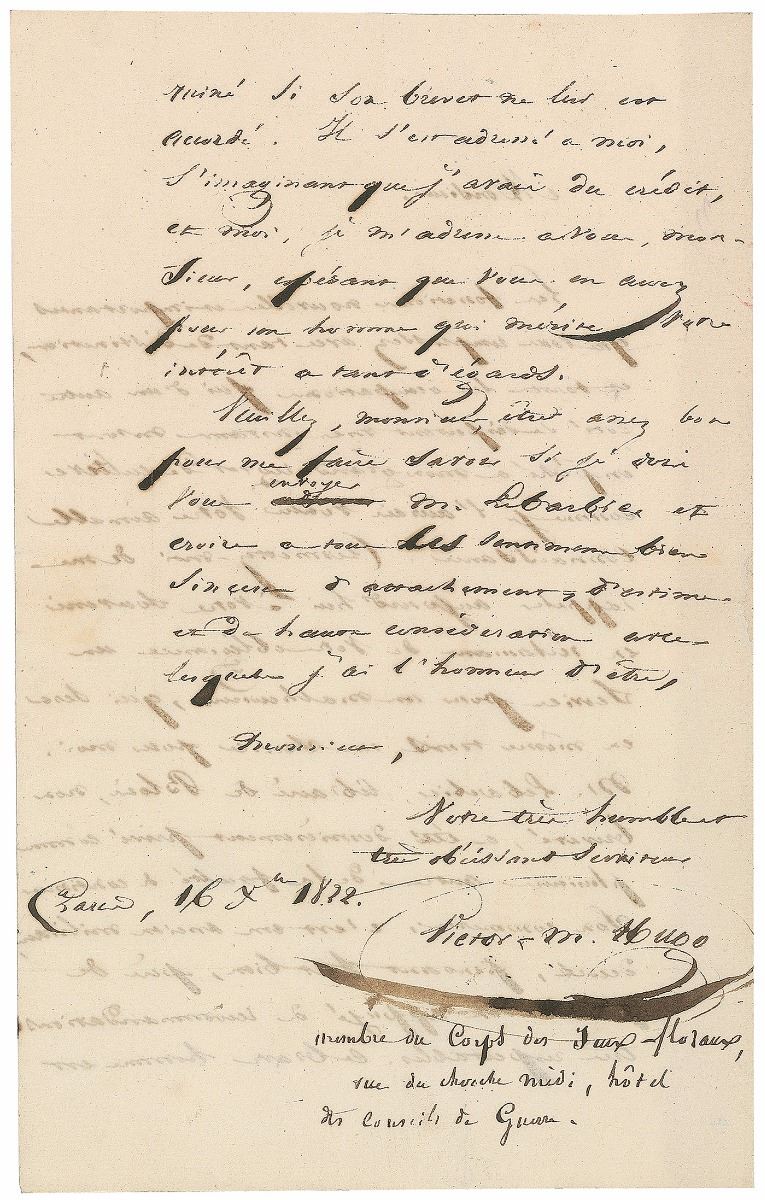 ruiné si son brevet ne lui est
accordé. Il s'est adressé a moi,
s'imaginant que j'avais du crédit,
et moi, je m'adresse a Vous, mon-
sieur, espérant que Vous en aurez
pour un homme qui mérite Votre
intérêt a tant d'égards.
Veuillez, monsieur, être assez bon
pour me faire savoir si je dois
envoyer
Vous M. Lebarbier et
croire a tous les sentimens bien
sincères d'attachement, d'estime
et de haute considération avec
lesquels j'ai l'honneur d'être,
Monsieur,
Votre très humble et
très obéissant serviteur
Paris, 16 Xbre 1822.
Victor-M. Hugo
membre du Corps des Jeux-floraux,
rue du cherche midi, hôtel
des Conseils de Guerre.